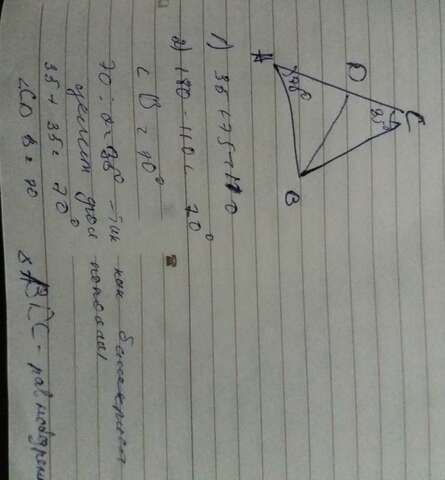 A
D
C
75°
35°
B
1) 35 + 75 = 110
2) 180 - 110 = 70°
∠ B = 70°
70 : 2 = 35° - так как биссектриса
делит угол пополам
35 + 35 = 70°
∠CDB = 70